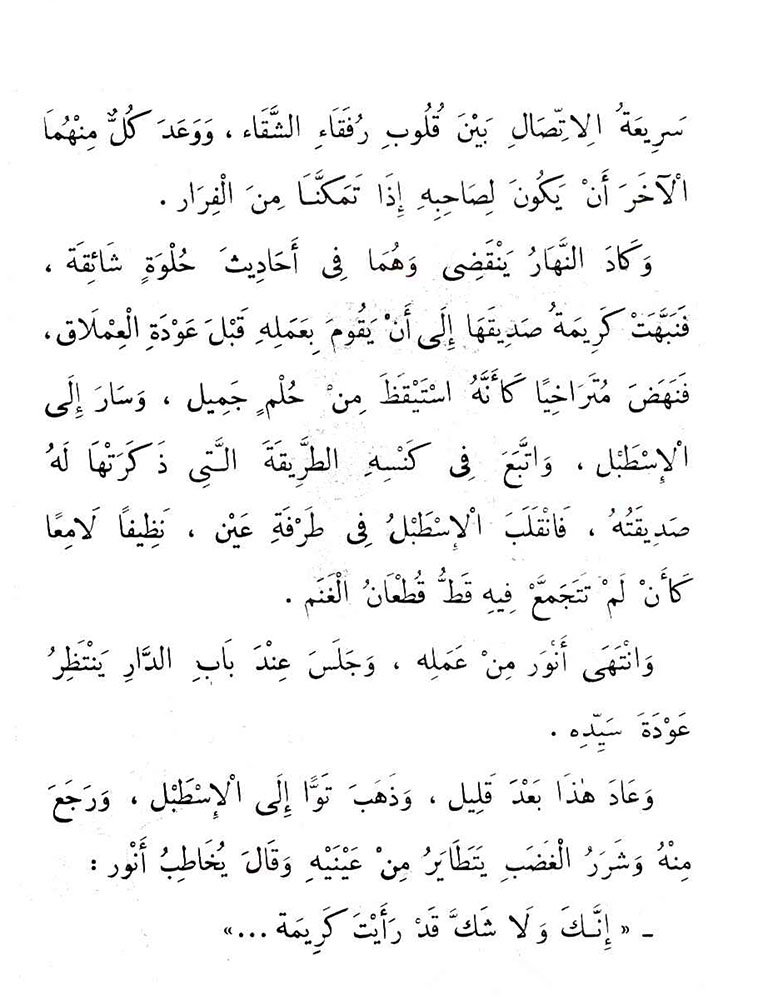 سَرِيعَةُ الِاتِّصَالِ بَيْنَ قُلُوبِ رُفَقَاءِ الشَّقَاء ، وَوَعَدَ كُلٌّ مِنْهُمَا
الْآخَرَ أَنْ يَكُونَ لِصَاحِبِهِ إِذَا تَمَكَّنَا مِنَ الْفِرَار .
وَكَادَ النَّهَارُ يَنْقَضِى وَهُمَا فِى أَحَادِيثَ حُلْوَةٍ شَائِقَة ،
فَنَبَّهَتْ كَرِيمَةُ صَدِيقَهَا إِلَى أَنْ يَقُومَ بِعَمَلِهِ قَبْلَ عَوْدَةِ الْعِمْلَاق،
فَنَهَضَ مُتَرَاخِيًا كَأَنَّهُ اسْتَيْقَظَ مِنْ حُلْمٍ جَمِيل ، وَسَارَ إِلَى
الْإِسْطَبْل ، وَاتَّبَعَ فِى كَنْسِهِ الطَّرِيقَةَ الَّتِى ذَكَرَتْهَا لَهُ
صَدِيقَتُهُ ، فَانْقَلَبَ الْإِسْطَبْلُ فِى طَرْفَةِ عَيْن ، نَظِيفًا لَامِعًا
كَأَنْ لَمْ تَتَجَمَّعْ فِيهِ قَطُّ قُطْعَانُ الْغَنَم .
وَانْتَهَى أَنْوَر مِنْ عَمَلِه ، وَجَلَسَ عِنْدَ بَابِ الدَّارِ يَنْتَظِرُ
عَوْدَةَ سَيِّدِه .
وَعَادَ هٰذَا بَعْدَ قَلِيل ، وَذَهَبَ تَوًّا إِلَى الْإِسْطَبْل ، وَرَجَعَ
مِنْهُ وَشَرَرُ الْغَضَبِ يَتَطَايَرُ مِنْ عَيْنَيْهِ وَقَالَ يُخَاطِبُ أَنْوَر :
ـ « إِنَّكَ وَلَا شَكَّ قَدْ رَأَيْتَ كَرِيمَة ...»